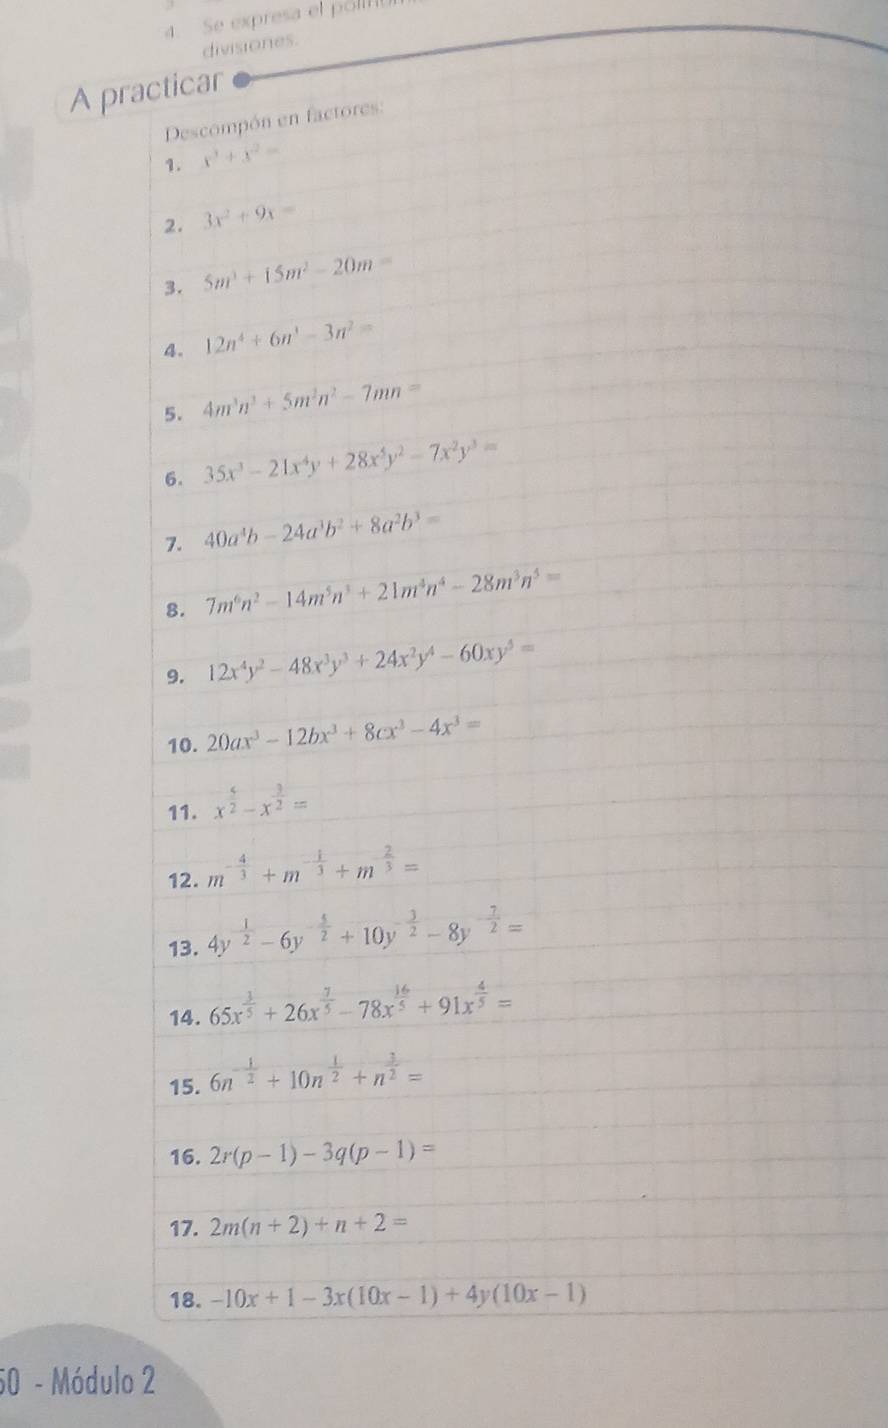 4. Se expresa el
divisiones.
A practicar
Descompón en factores:
1. x³ + x² =
2. 3x² + 9x =
3. 5m³ + 15m² - 20m =
4. 12n⁴ + 6n³ - 3n² =
5. 4m³n³ + 5m²n² - 7mn =
6. 35x³ - 21x⁴y + 28x⁵y² - 7x²y³ =
7. 40a⁴b - 24a³b² + 8a²b³ =
8. 7m⁶n² - 14m⁵n³ + 21m⁴n⁴ - 28m³n⁵ =
9. 12x⁴y² - 48x³y³ + 24x²y⁴ - 60xy⁵ =
10. 20ax³ - 12bx³ + 8cx³ - 4x³ =
11. x^(5/2) - x^(3/2) =
12. m^(-4/3) + m^(-1/3) + m^(2/3) =
13. 4y^(-1/2) - 6y^(-5/2) + 10y^(-3/2) - 8y^(-7/2) =
14. 65x^(3/5) + 26x^(7/5) - 78x^(16/5) + 91x^(4/5) =
15. 6n^(-1/2) + 10n^(1/2) + n^(3/2) =
16. 2r(p - 1) - 3q(p - 1) =
17. 2m(n + 2) + n + 2 =
18. -10x + 1 - 3x(10x - 1) + 4y(10x - 1)
50 - Módulo 2